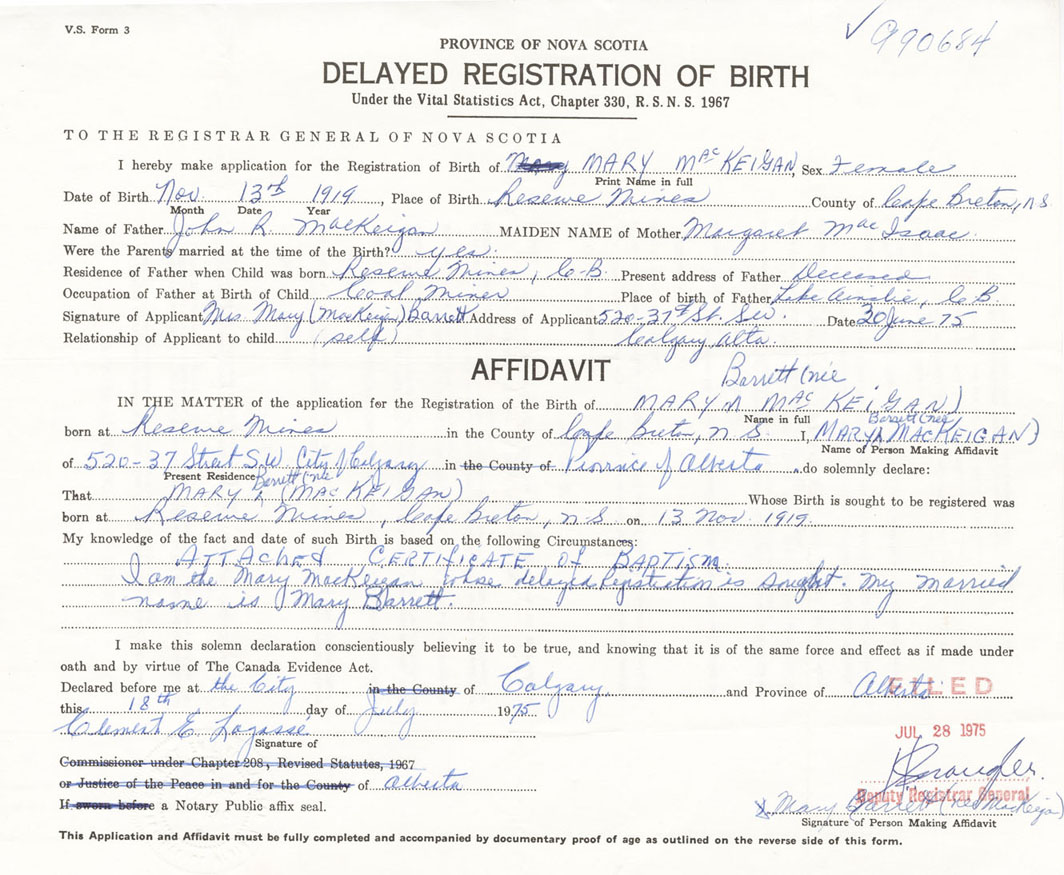 V.S. Form 3
✓ 990684
PROVINCE OF NOVA SCOTIA
DELAYED REGISTRATION OF BIRTH
Under the Vital Statistics Act, Chapter 330, R. S. N. S. 1967
TO THE REGISTRAR GENERAL OF NOVA SCOTIA
I hereby make application for the Registration of Birth of MARY MacKEIGAN, Sex Female
Print Name in full
Date of Birth Nov. 13th 1919, Place of Birth Reserve Mines County of Cape Breton, N S
Month Date Year
Name of Father John R. MacKeigan MAIDEN NAME of Mother Margaret MacIsaac
Were the Parents married at the time of the Birth? yes
Residence of Father when Child was born Reserve Mines, C-B. Present address of Father Deceased
Occupation of Father at Birth of Child Coal Miner Place of birth of Father Lake Ainslie, C.B.
Signature of Applicant Mrs. Mary (MacKeigan) Barrett Address of Applicant 520-37th St. S.W. Date 30 June 75
Relationship of Applicant to child (self) Calgary Alta.
AFFIDAVIT
Barrett (nee
IN THE MATTER of the application for the Registration of the Birth of MARY MAC KEIGAN)
Name in full Barrett (nee
born at Reserve Mines in the County of Cape Breton, N S. I, MARY MACKEIGAN)
Name of Person Making Affidavit
of 520-37 Street S.W. City of Calgary in the County of Province of Alberta do solemnly declare:
Present Residence Barrett (nee
That MARY (MAC KEIGAN) Whose Birth is sought to be registered was
born at Reserve Mines, Cape Breton, N S on 13 Nov. 1919.
My knowledge of the fact and date of such Birth is based on the following Circumstances:
ATTACHED CERTIFICATE OF BAPTISM.
I am the Mary MacKeigan whose delayed registration is sought. My married
name is Mary Barrett.
I make this solemn declaration conscientiously believing it to be true, and knowing that it is of the same force and effect as if made under
oath and by virtue of The Canada Evidence Act.
Declared before me at the City in the County of Calgary and Province of Alberta
FILED
this 18th day of July 1975
Clement E. Lagasse
Signature of
JUL 28 1975
Commissioner under Chapter 208, Revised Statutes, 1967
or Justice of the Peace in and for the County of Alberta
Deputy Registrar General
If sworn before a Notary Public affix seal.
x Mary Barrett (nee MacKeigan)
Signature of Person Making Affidavit
This Application and Affidavit must be fully completed and accompanied by documentary proof of age as outlined on the reverse side of this form.